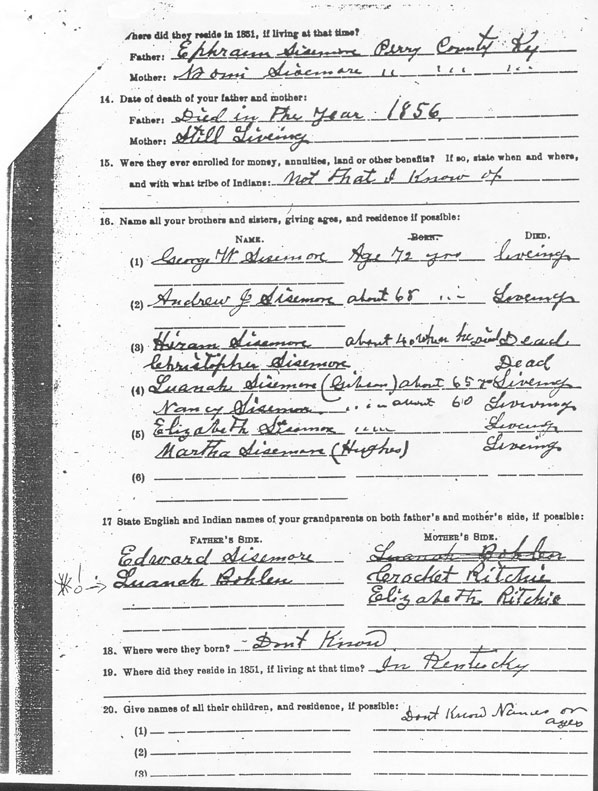 here did they reside in 1851, if living at that time?
Father: Ephraim Sisemore Perry County Ky
Mother: Naomi Sisemore " " "
14. Date of death of your father and mother:
Father: Died in the year 1856
Mother: Still Liveing
15. Were they ever enrolled for money, annuities, land or other benefits? If so, state when and where,
and with what tribe of Indians: Not that I Know of
16. Name all your brothers and sisters, giving ages, and residence if possible:
NAME. BORN. DIED.
(1) George W Sisemore Age 72 yrs liveing
(2) Andrew J Sisemore about 68 " Liveing
(3) Hiram Sisemore about 40 when he died Dead
Christopher Sisemore Dead
(4) Luanah Sisemore (Gibson) about 65 yr Liveing
Nancy Sisemore " " about 60 Liveing
(5) Elizabeth Sisemore " " Liveing
Martha Sisemore (Hughes) Liveing
(6)
17 State English and Indian names of your grandparents on both father's and mother's side, if possible:
FATHER'S SIDE. MOTHER'S SIDE.
Edward Sisemore Luanah Bohlen
*!→ Luanah Bohlen Crocket Ritchie
Elizabeth Ritchie
18. Where were they born? Dont Know
19. Where did they reside in 1851, if living at that time? In Kentucky
20. Give names of all their children, and residence, if possible: Dont Know Names or
ages
(1)
(2)
(3)